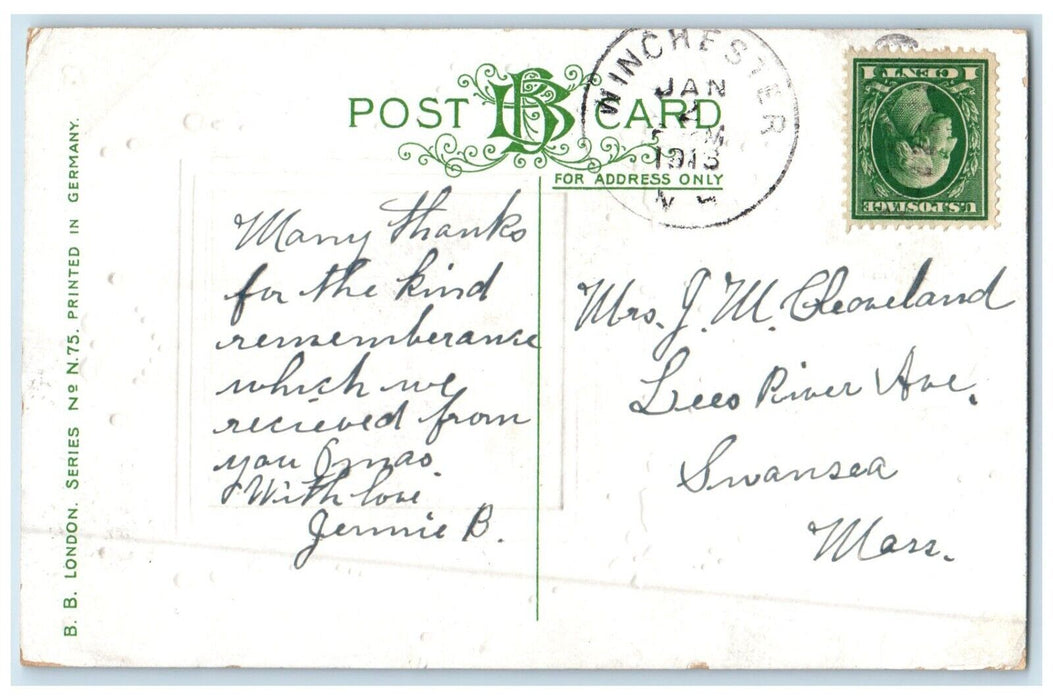 POST CARD
FOR ADDRESS ONLY
WINCHESTER
JAN
2
M
1913
N.H.
1 CENT 1
U.S. POSTAGE
Many thanks
for the kind
rememberance
which we
recieved from
you Xmas.
With love
Jennie B.
Mrs. J. M. Cleaveland
Lees River Ave.
Swansea
Mass.
B. B. LONDON. SERIES No N.75. PRINTED IN GERMANY.